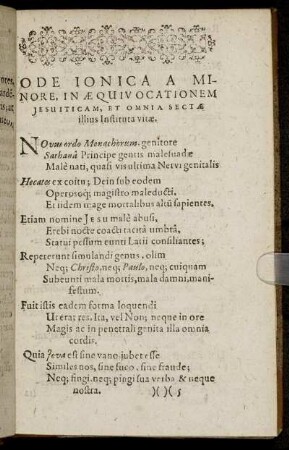 ODE IONICA A MI-
NORE, IN ÆQUIVOCATIONEM
JESUITICAM, ET OMNIA SECTÆ
illius Instituta vitæ.
NOvus ordo Monachorum, genitore
Sathanâ Principe gentis malesuadæ
Malè nati, quasi vis ultima Nervi genitalis
Hecates ex coitu; Dein sub eodem
Operosoq; magistro maleducti.
Et iidem mage mortalibus altũ sapientes.
Etiam nomine JESU malè abusi,
Erebi nocte coacti tacitâ umbrâ,
Statui pessum eunti Latii consiliantes;
Repererunt simulandi genus, olim
Neq; Christo, neq; Paulo, neq; cuiquam
Subeunti mala mortis, mala damni, mani-
festum.
Fuit istis eadem forma loquendi
Uterat res. Ita, vel Non; neque in ore
Magis ac in penetrali genita illa omnia
cordis.
Quia Jeva est sine vano jubet esse
Similes nos, sine fuco, sine fraude;
Neq; fingi, neq; pingi sua verba & neque
nostra. )()( 5